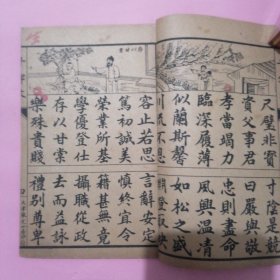 尺璧非寶 寸陰是競
資父事君 曰嚴與敬
孝當竭力 忠則盡命
臨深履薄 夙興溫凊
似蘭斯馨 如松之盛
川流不息 淵澄取映
容止若思 言辭安定
篤初誠美 慎終宜令
榮業所基 籍甚無竟
學優登仕 攝職從政
存以甘棠 去而益詠
樂殊貴賤 禮別尊卑